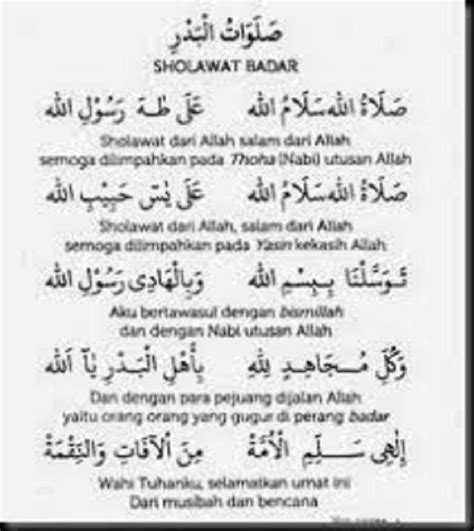 صَلَوَاتُ الْبَدْرِ
SHOLAWAT BADAR
صَلَاةُ اللهِ سَلَامُ اللهِ عَلَى طٰهَ رَسُوْلِ اللهِ
Sholawat dari Allah salam dari Allah
semoga dilimpahkan pada Thoha (Nabi) utusan Allah
صَلَاةُ اللهِ سَلَامُ اللهِ عَلَى يٰسٓ حَبِيْبِ اللهِ
Sholawat dari Allah, salam dari Allah
semoga dilimpahkan pada Yasin kekasih Allah
تَوَسَّلْنَا بِبِسْمِ اللهِ وَبِالْهَادِى رَسُوْلِ اللهِ
Aku bertawasul dengan bismillah
dan dengan Nabi utusan Allah
وَكُلِّ مُجَاهِدٍ لِلّٰهِ بِأَهْلِ الْبَدْرِ يَآ اَللهُ
Dan dengan para pejuang dijalan Allah
yaitu orang orang yang gugur di perang badar
اِلٰهِى سَلِّمِ الْأُمَّةْ مِنَ الْاٰفَاتِ وَالنِّقْمَةْ
Wahi Tuhanku, selamatkan umat ini
Dari musibah dan bencana